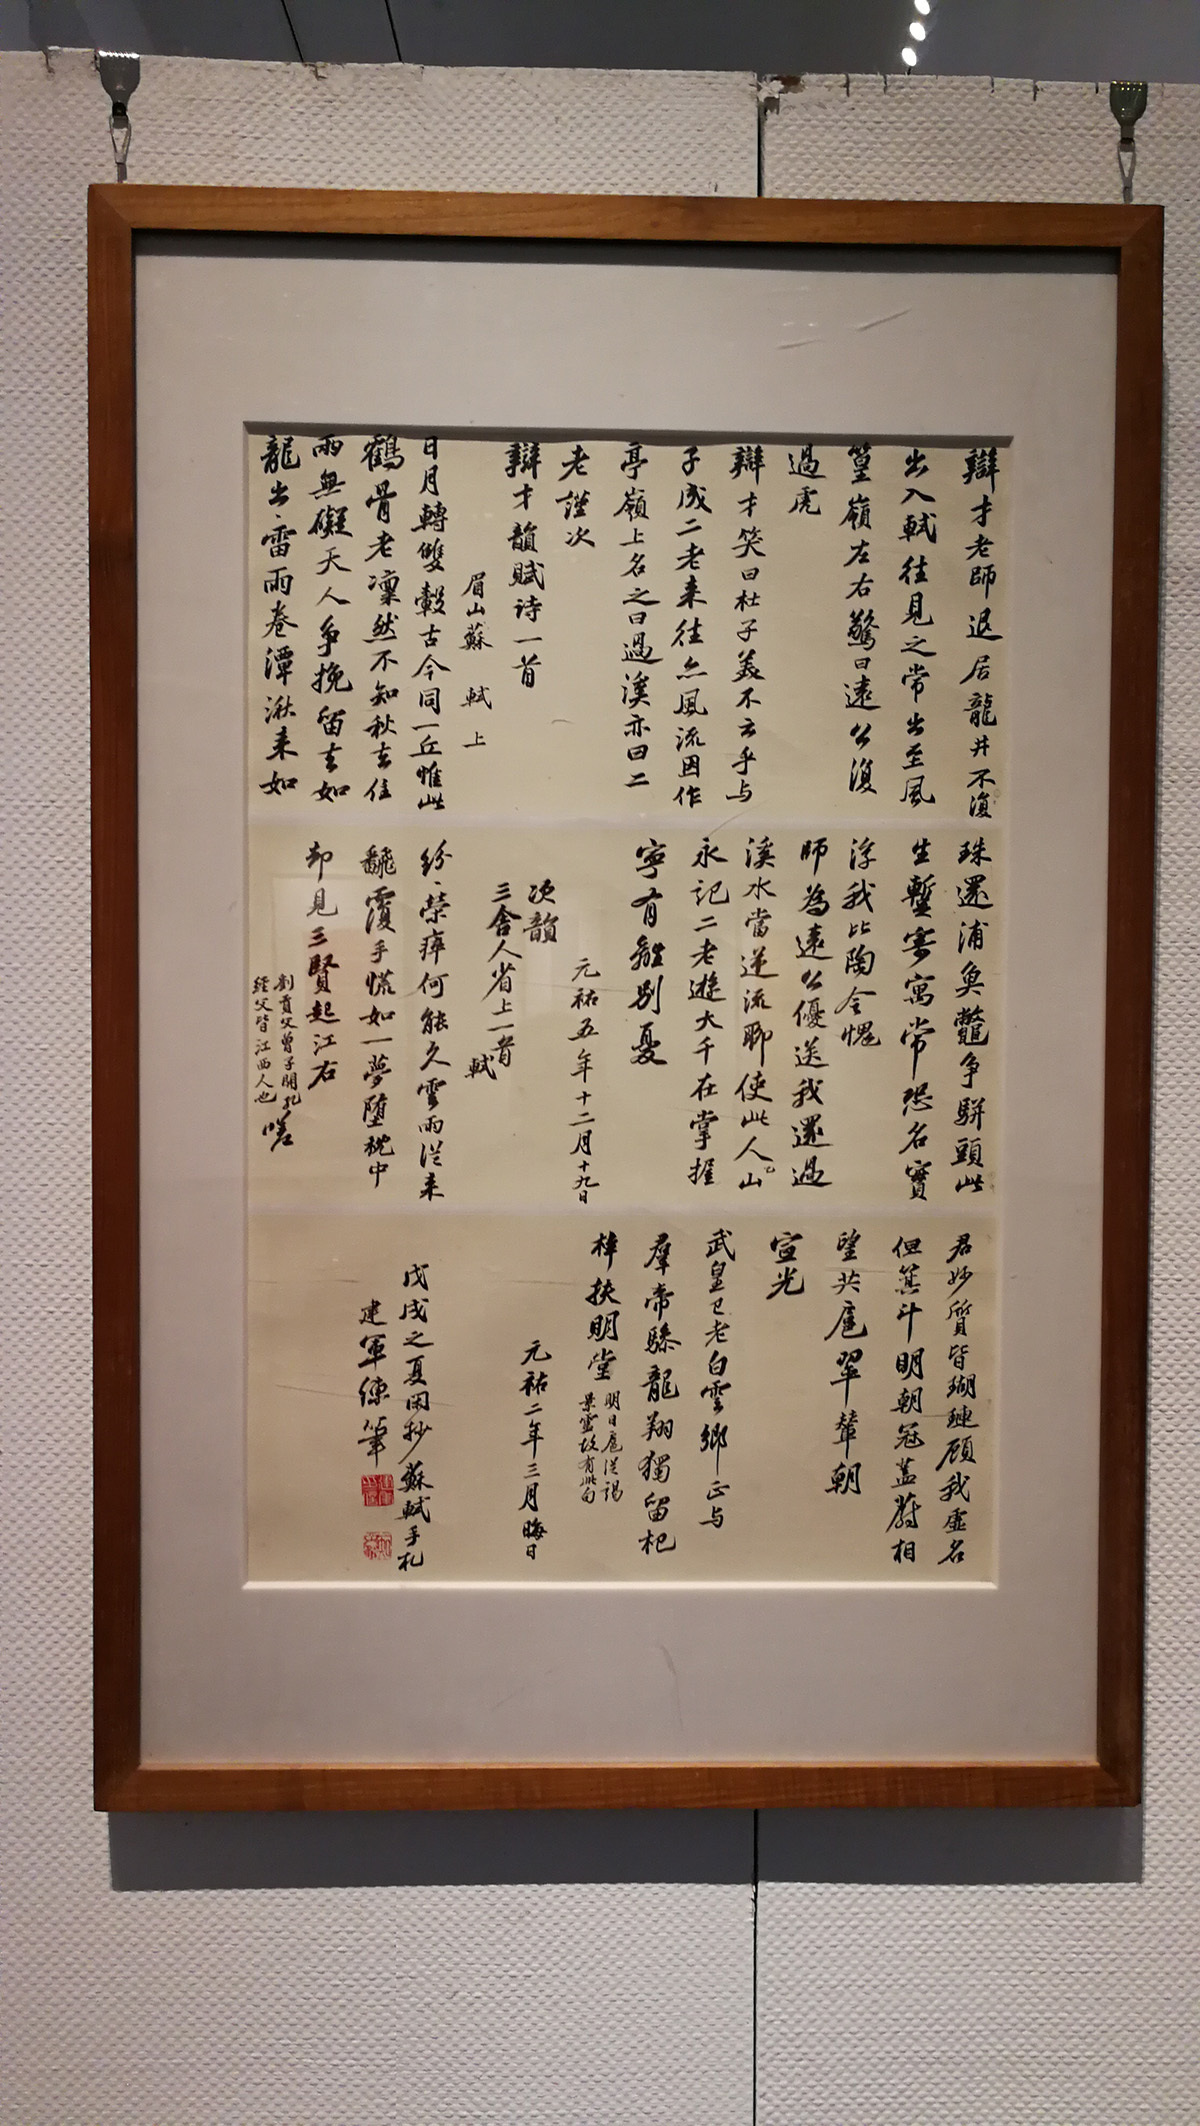 辯才老師退居龍井不復
出入軾往見之常出至風
篁嶺左右驚曰遠公復
過虎
辯才笑曰杜子美不云乎与
子成二老来往亦風流因作
亭嶺上名之曰過溪亦曰二
老謹次
辯才韻賦诗一首
眉山蘇軾上
日月轉雙轂古今同一丘惟此
鶴骨老凜然不知秋去住
兩無礙天人争挽留去如
龍出雷雨卷潭湫来如
珠還浦奐鼈争駢頭此
生蹔寄寓常恐名實
浮我比陶令愧
師為遠公優送我還過
溪水當逆流聊使此人山
永記二老遊大千在掌握
寧有離別憂
元祐五年十二月十九日
次韻
三舍人省上一首
軾
纷〻榮瘁何能久雲雨從来
翻覆手恍如一夢堕枕中
却見三賢起江右
劉貢父曾子開孔
經父皆江西人也
嗟
君妙質皆瑚璉顧我虛名
但箕斗明朝冠蓋蔚相
望共扈翠輦朝
宣光
武皇已老白雲鄉正与
羣帝驂龍翔獨留杞
梓扶明堂
明日扈從謁
景靈故有此句
元祐二年三月晦日
戊戌之夏闲抄蘇軾手札
建軍練筆